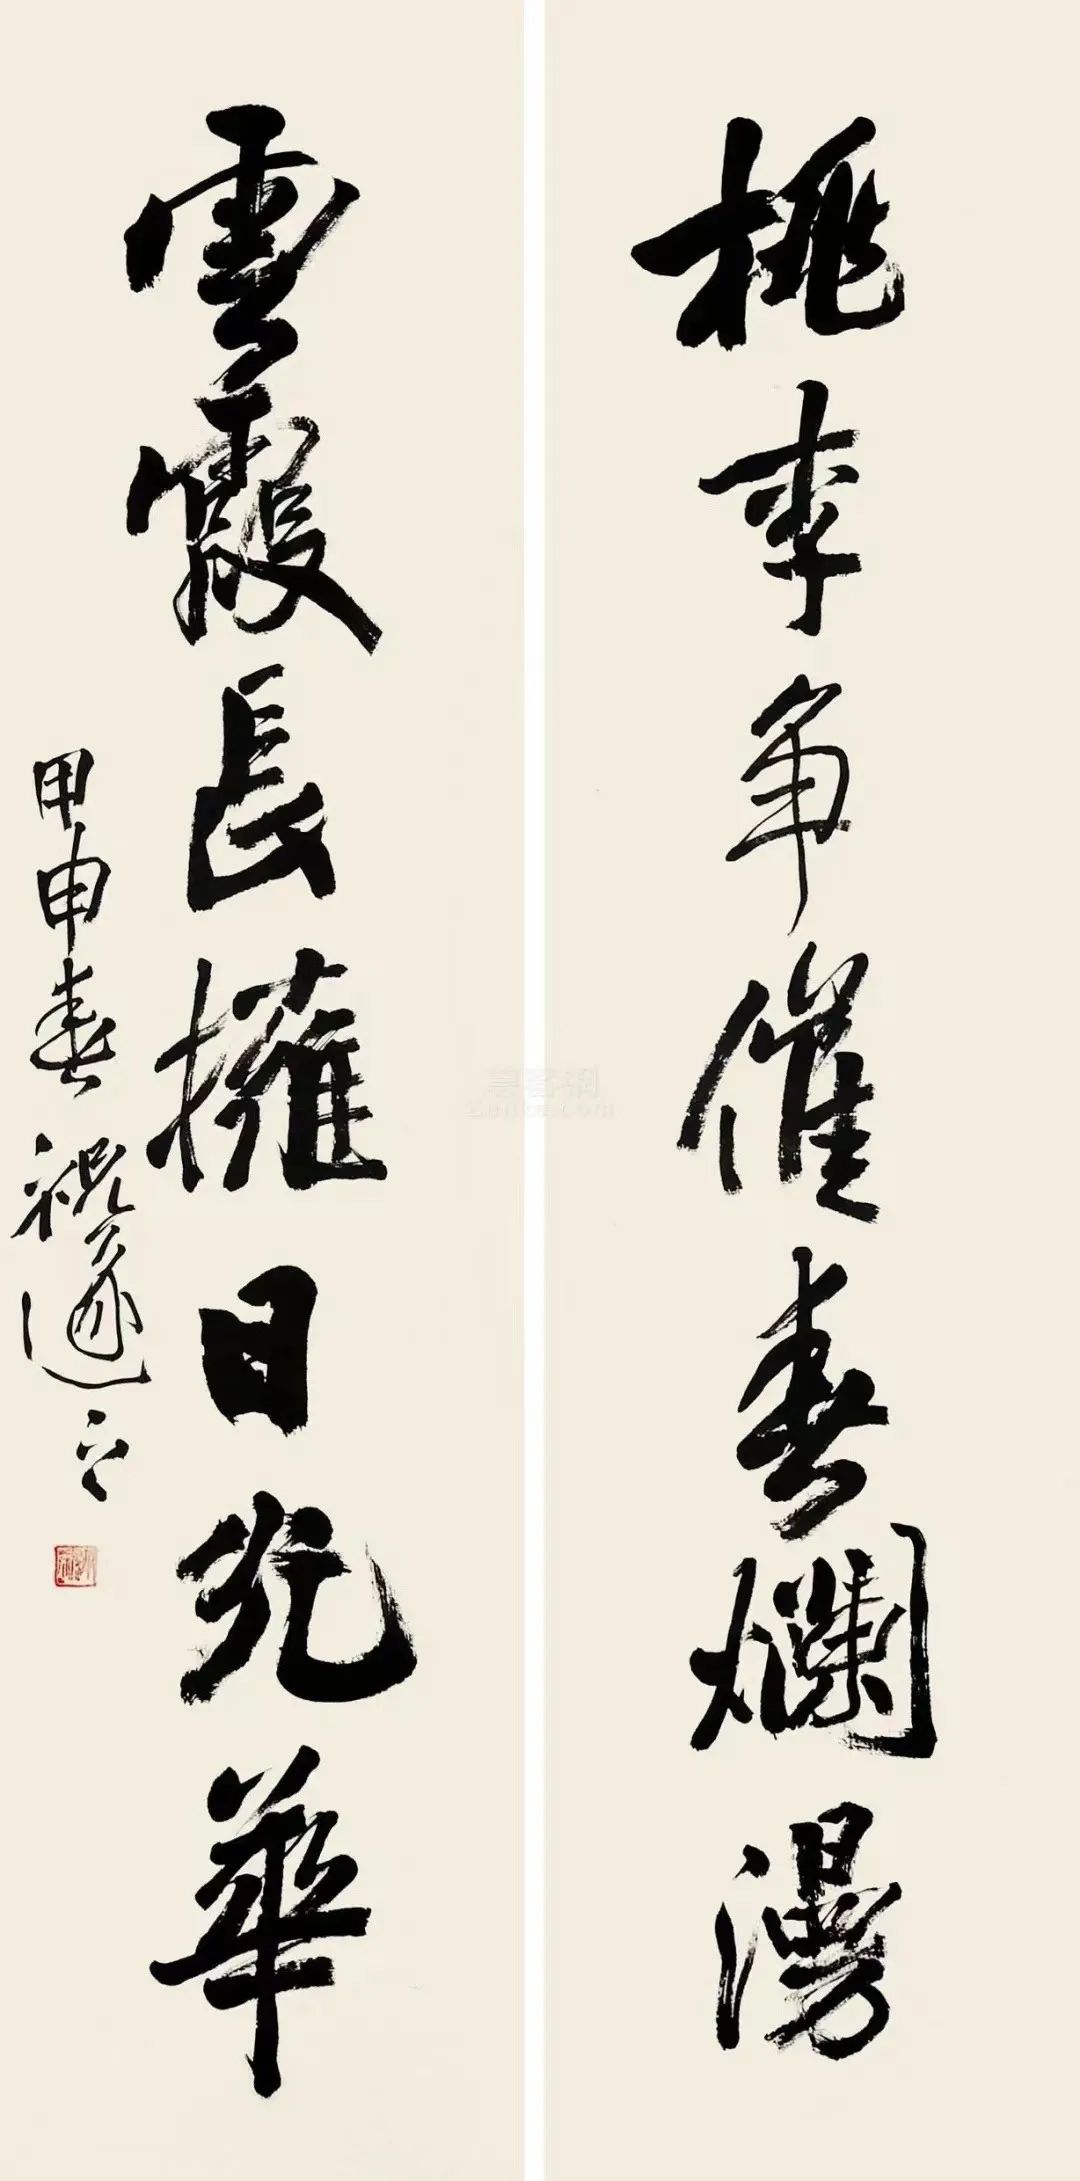 桃李争催春爛漫
雲霞長擁日光華
甲申春祝遂之